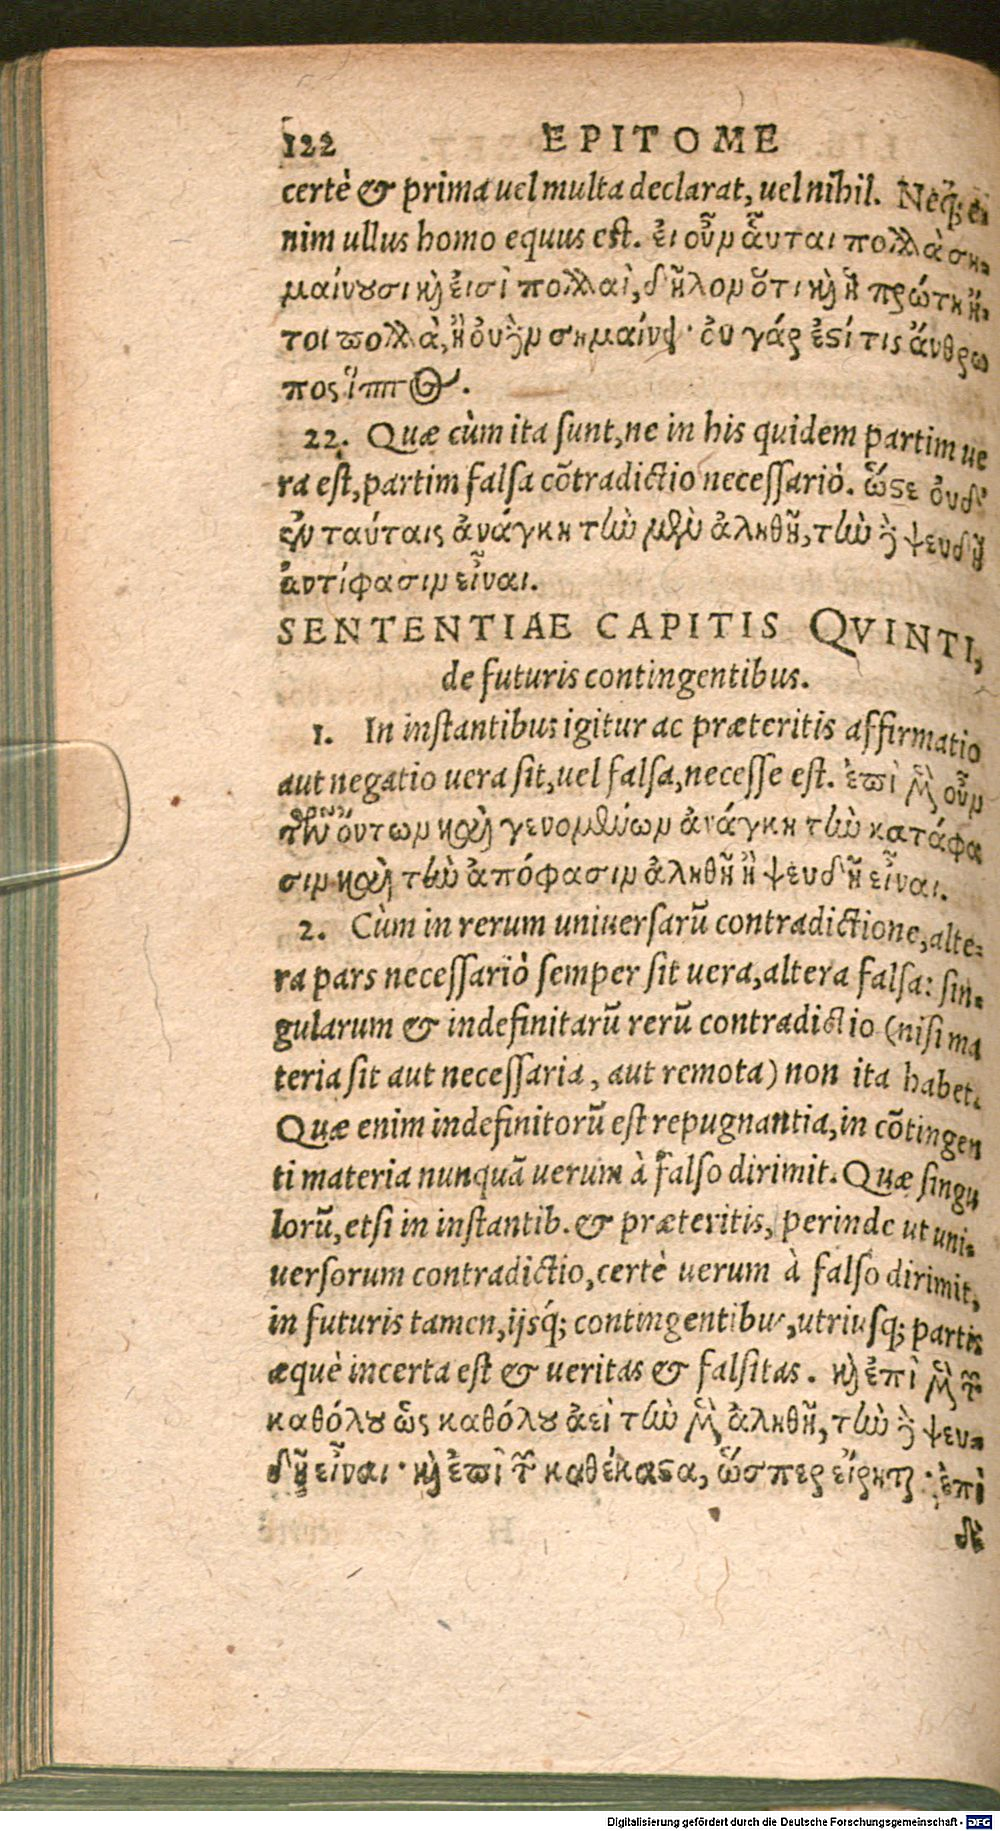 122 EPITOME
certè & prima uel multa declarat, uel nihil. Neq́; e-
nim ullus homo equus est. εἰ οὖν αὗται πολλὰ ση-
μαίνουσι καὶ εἰσὶ πολλαὶ, δῆλον ὅτι καὶ ἡ πρώτη ἤ-
τοι πολλὰ, ἢ οὐδὲν σημαίνει· οὐ γάρ ἐστί τις ἄνθρω
πος ἵππος.
22. Quæ cùm ita sunt, ne in his quidem partim ue
ra est, partim falsa cõtradictio necessariò. ὥστε οὐδ'
ἐν ταύταις ἀνάγκη τὴν μὲν ἀληθῆ, τὴν δὲ ψευδῆ
ἀντίφασιν εἶναι.
SENTENTIAE CAPITIS QVINTI,
de futuris contingentibus.
1. In instantibus igitur ac præteritis affirmatio
aut negatio uera sit, uel falsa, necesse est. ἐπὶ μὲν οὖν
τῶν ὄντων καὶ γενομένων ἀνάγκη τὴν κατάφα
σιν καὶ τὴν ἀπόφασιν ἀληθῆ ἢ ψευδῆ εἶναι.
2. Cùm in rerum uniuersarũ contradictione, alte-
ra pars necessariò semper sit uera, altera falsa: sin-
gularum & indefinitarũ rerũ contradictio (nisi ma
teria sit aut necessaria, aut remota) non ita habet.
Quæ enim indefinitorũ est repugnantia, in cõtingen
ti materia nunquã uerum à falso dirimit. Quæ singu
lorũ, etsi in instantib. & præteritis, perinde ut uni-
uersorum contradictio, certè uerum à falso dirimit,
in futuris tamen, ijsq́; contingentibus, utriusq; partis
æquè incerta est & ueritas & falsitas. καὶ ἐπὶ μὲν τῶν
καθόλου ὡς καθόλου ἀεὶ τὴν μὲν ἀληθῆ, τὴν δὲ ψευ-
δῆ εἶναι· καὶ ἐπὶ τῶν καθέκαστα, ὥσπερ εἴρηται· ἐπὶ
δὲ
Digitalisierung gefördert durch die Deutsche Forschungsgemeinschaft - DFG